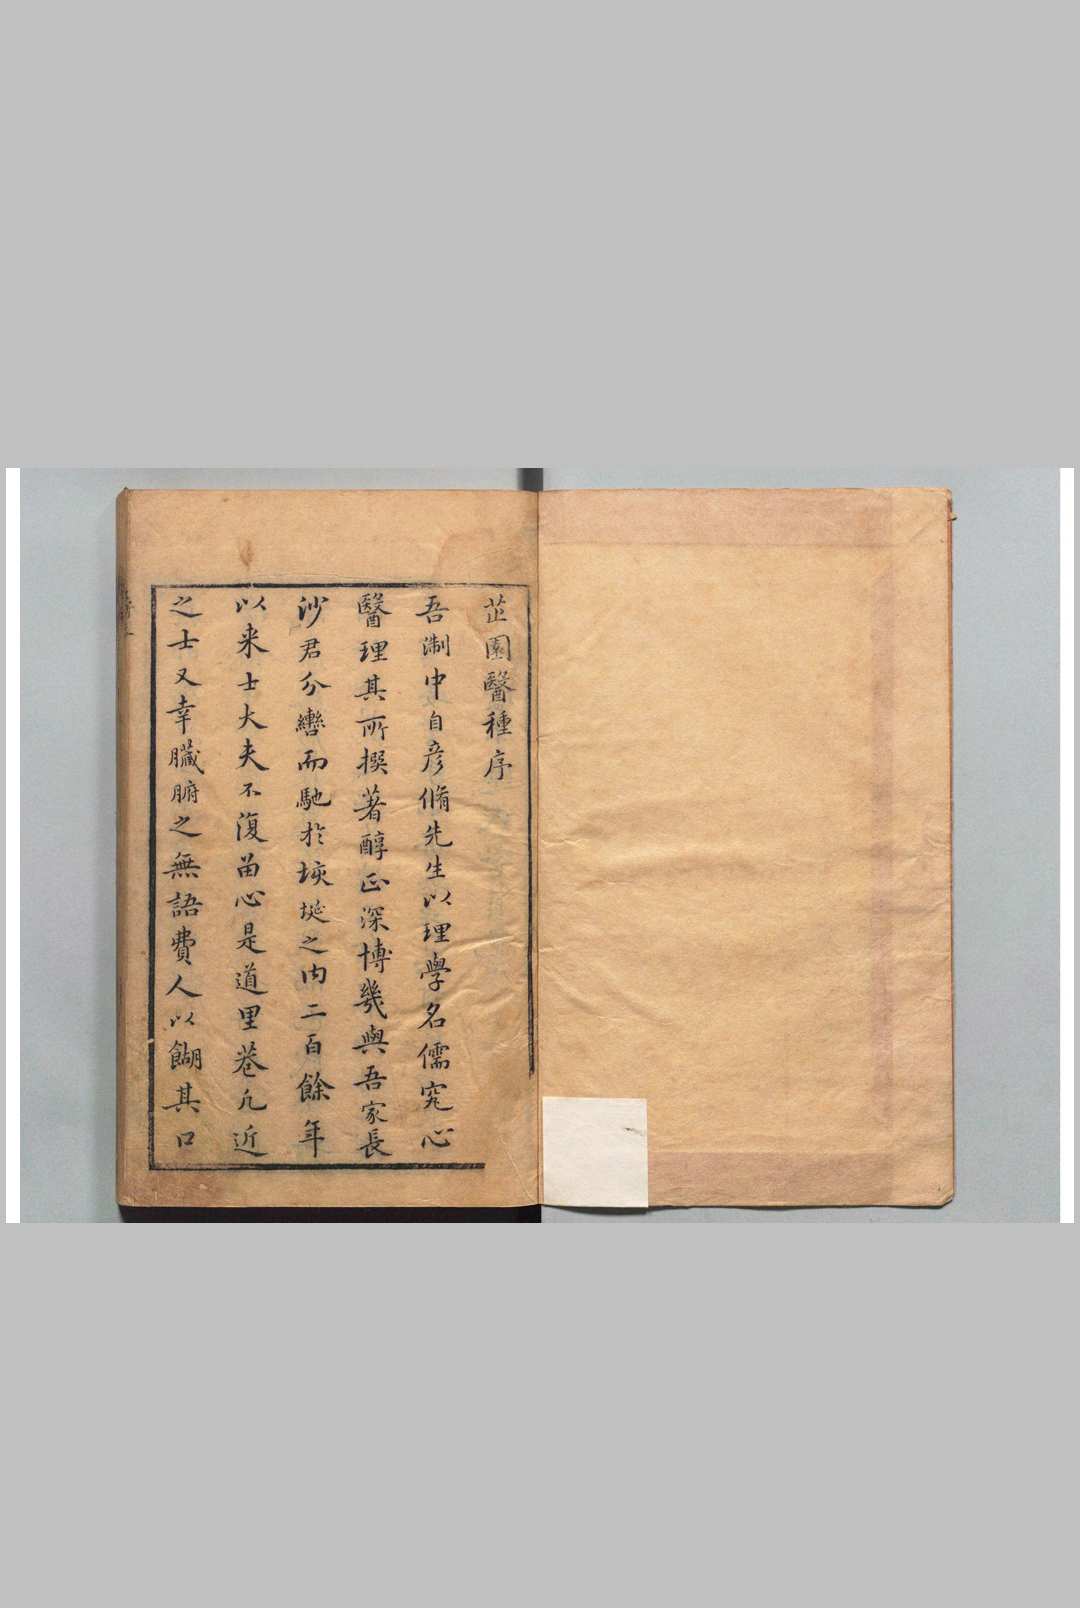 芷園醫種序
吾淛中自彦脩先生以理學名儒究心
醫理其所撰著醇正深博幾與吾家長
沙君分轡而馳於垓埏之内二百餘年
以来士大夫不復留心是道里巷凢近
之士又幸臓腑之無語費人以餬其口